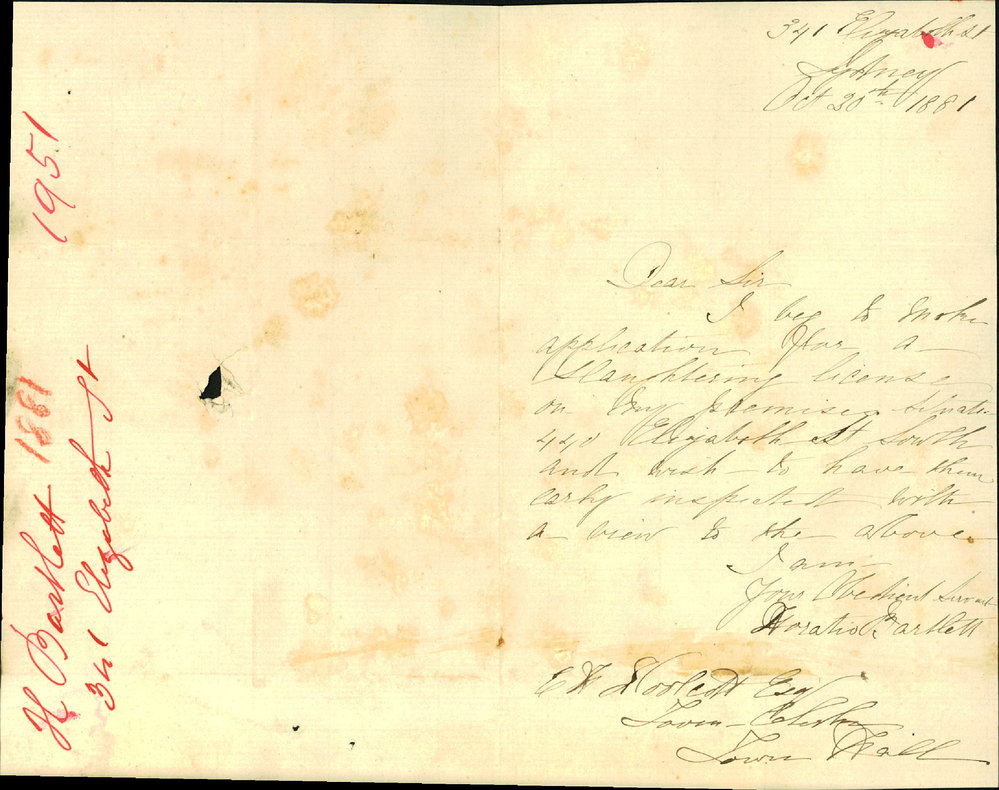 341 Elizabeth St
Sydney
Oct 20th 1881
Dear Sir
I beg to make
application for a
Slaughtering license
on my premises situate
440 Elizabeth St South
and wish to have them
early inspected with
a view to the above.
I am
Your Obedient Servant
Horatio Bartlett
C H Woolcott Esq
Town Clerk
Town Hall
H Bartlett 1881 1951
341 Elizabeth St